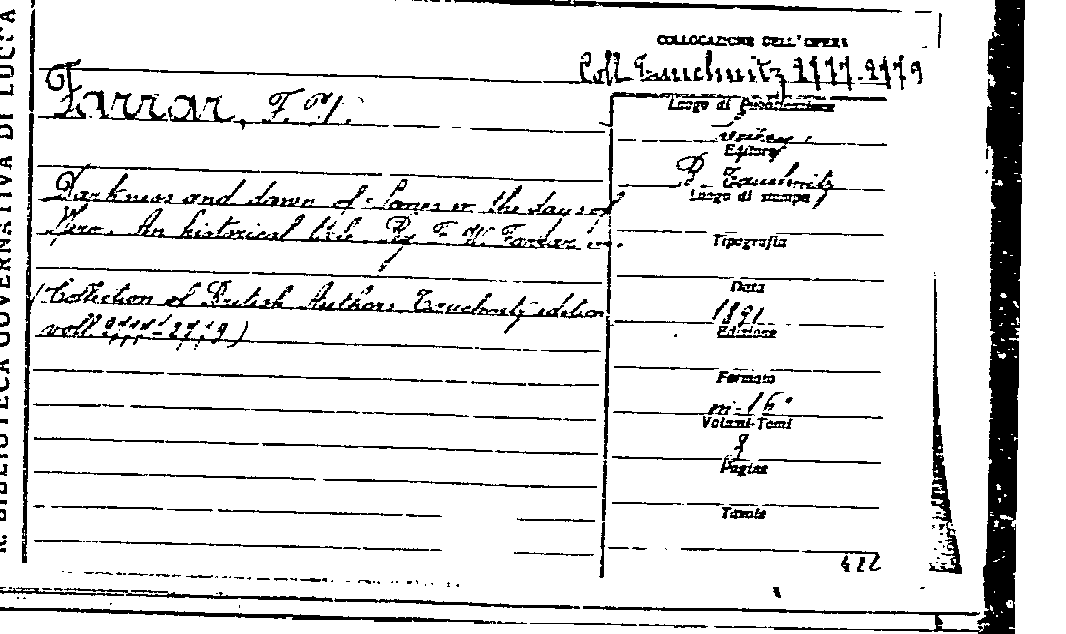 R. BIBLIOTECA GOVERNATIVA DI LUCCA
COLLOCAZIONE DELL'OPERA
Coll. Tauchnitz 2777-2779
Farrar, F. W.
Luogo di Pubblicazione
Editore
B. Tauchnitz
Luogo di stampa
Darkness and dawn of Scenes in the days of
Nero. An historical tale. By F. W. Farrar
Tipografia
Data
(Collection of British Authors Tauchnitz edition
1891
voll 2777-2779)
Edizione
Formato
in-16°
Volumi-Tomi
Pagine
Tavole
422